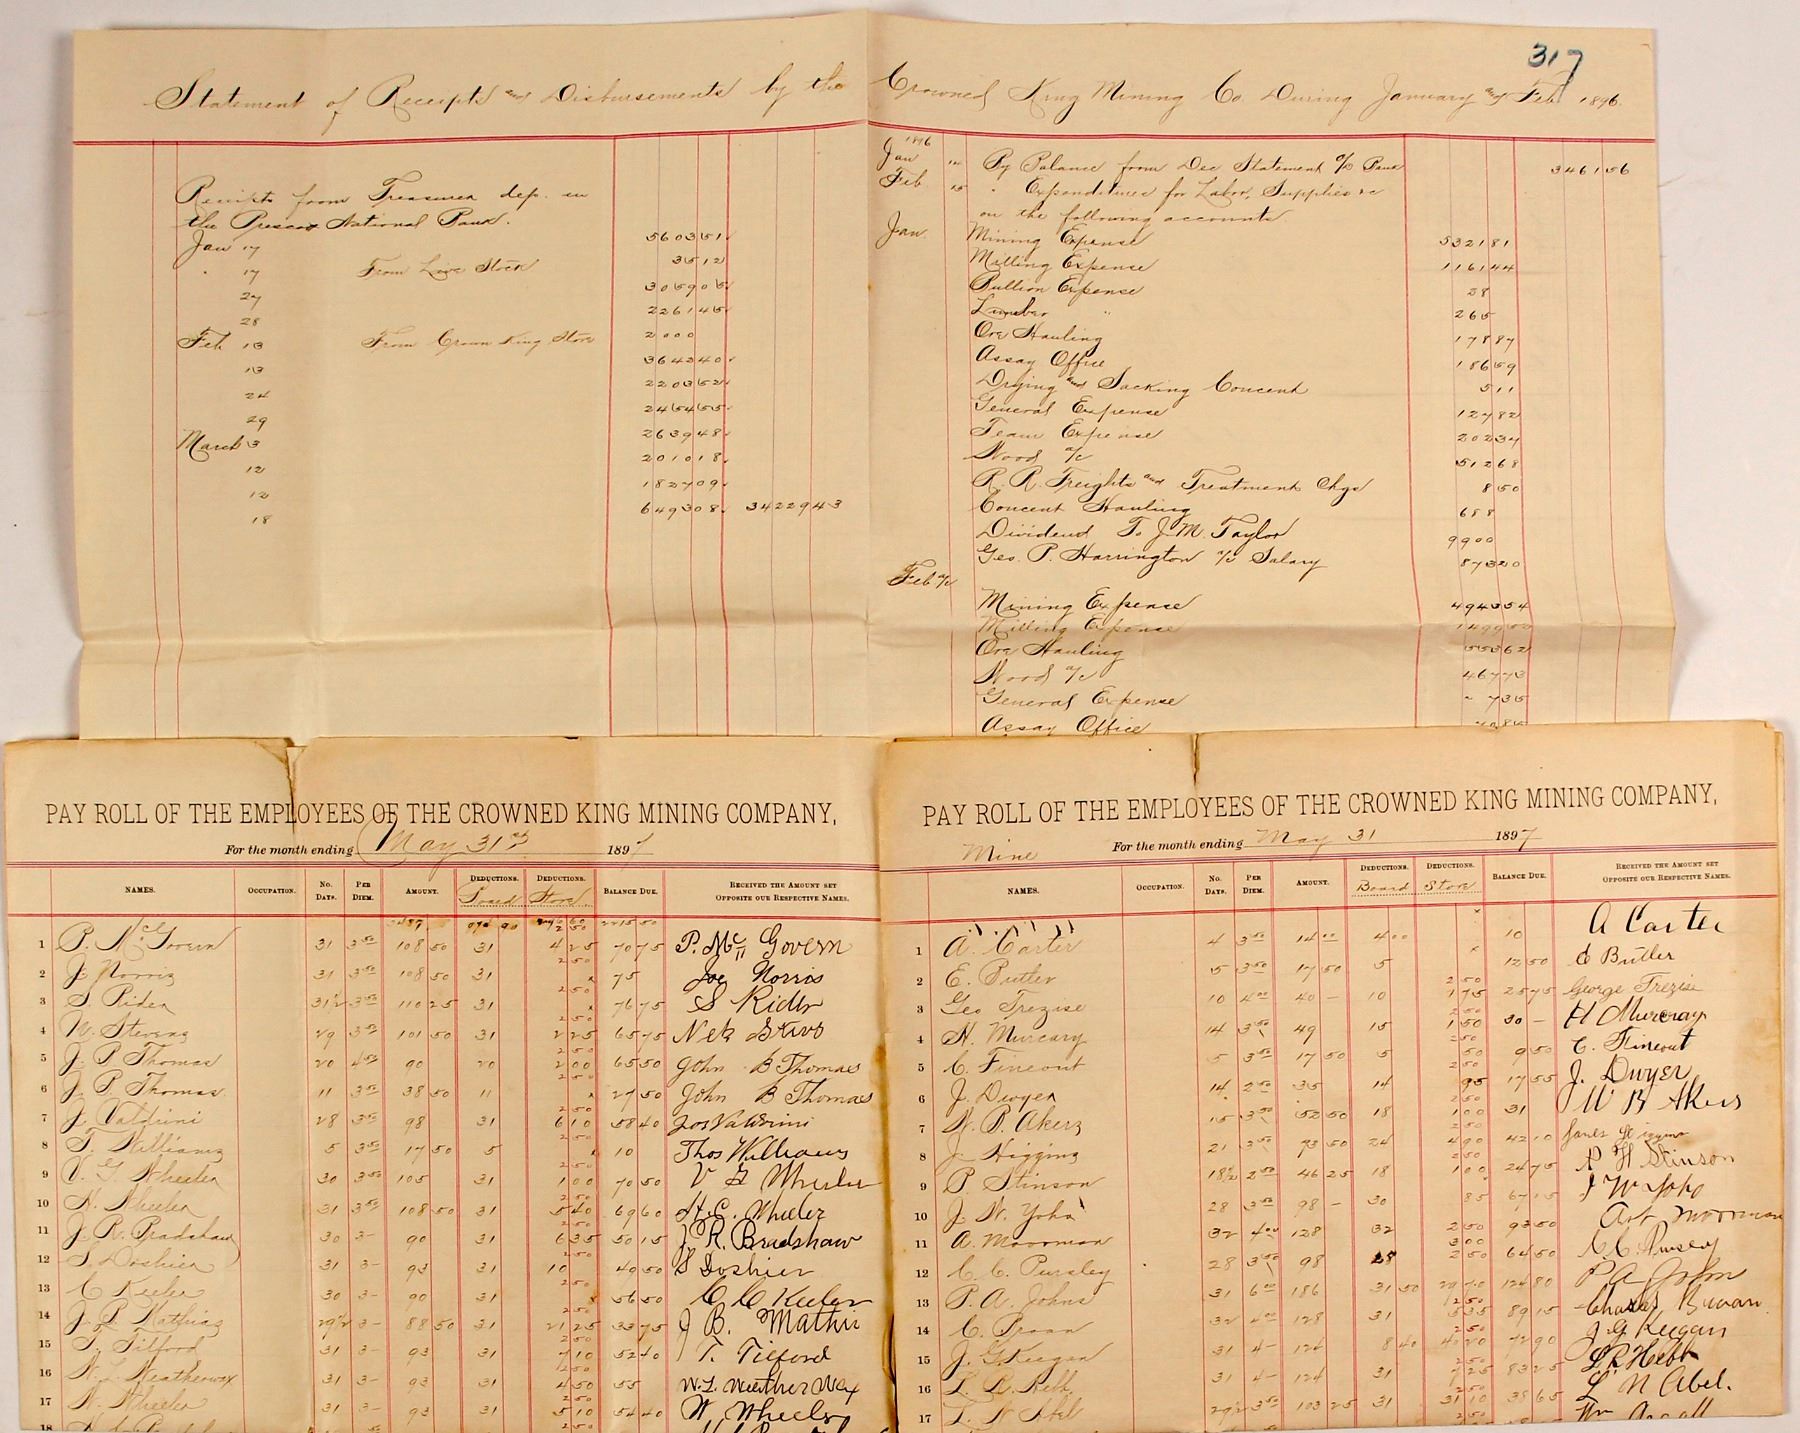 317
Statement of Receipts and Disbursements by the Crowned King Mining Co During January and Feb 1896.
Receipts from Treasurer dep. in
the Prescott National Bank.
Jan 17 5603 51
" 17 From Live Stock 35 12
27 3059 05
28 2261 45
Feb 13 From Crown King Store 20 00
13 3642 40
24 2203 52
29 2454 55
March 3 2639 48
12 2010 18
12 1827 09
18 6493 08 34229 43
1896
Jan By Balance from Dec Statement a/c Bank 3461 56
Feb 15 " Expenditures for Labor, Supplies &c
on the following accounts
Jan Mining Expense 5321 81
Milling Expense 1161 44
Bullion Expense 28
Lumber " 265
Ore Hauling 178 87
Assay Office 186 59
Drying and Sacking Concent 5 11
General Expense 127 82
Team Expense 202 34
Wood a/c 512 68
R. R. Freights and Treatment Chgs 8 50
Concent Hauling 6 88
Dividend To J. M. Taylor 9900
Geo. P. Harrington a/c Salary 873 20
Feb a/c
Mining Expense 4943 54
Milling Expense
Ore Hauling 553 62
Wood a/c 467 73
General Expense 7 35
Assay Office
PAY ROLL OF THE EMPLOYEES OF THE CROWNED KING MINING COMPANY,
For the month ending May 31st 1897
NAMES. OCCUPATION. No. DAYS. PER DIEM. AMOUNT. DEDUCTIONS. Board DEDUCTIONS. Store BALANCE DUE. RECEIVED THE AMOUNT SET OPPOSITE OUR RESPECTIVE NAMES.
1 P. McGovern 31 3 50 108 50 31 2 50 4 25 70 75 P. McGovern
2 J. Norris 31 3 50 108 50 31 2 50 75 Joe Norris
3 S. Rider 31½ 3 50 110 25 31 2 50 76 75 S Rider
4 W. Stevens 29 3 50 101 50 31 2 50 2 25 65 75
5 J. B Thomas 20 4 50 90 20 2 50 2 00 65 50 John B Thomas
6 J. B. Thomas 11 3 50 38 50 11 27 50 John B Thomas
7 J. Valdrini 28 3 50 98 31 2 50 6 10 58 40 Jos Valdrini
8 T. Williams 5 3 50 17 50 5 2 50 10 Thos Williams
9 V. G. Wheeler 30 3 50 105 31 2 50 1 00 70 50 V G Wheeler
10 H. Wheeler 31 3 50 108 50 31 2 50 5 40 69 60 H. C. Wheeler
11 J. R. Bradshaw 30 3- 90 31 2 50 6 35 50 15 J R. Bradshaw
12 S. Doshier 31 3- 93 31 2 50 10 49 50 S Doshier
13 C Keeler 30 3- 90 31 2 50 56 50 C C Keeler
14 J. B Mathis 29½ 3- 88 50 31 2 50 21 25 33 75 J B. Mathis
15 T. Tilford 31 3- 93 31 2 50 7 10 52 40 T. Tilford
16 W. L. Weatherwax 31 3- 93 31 2 50 4 50 55 W. L. Weatherwax
17 W. Wheeler 31 3- 93 31 2 50 5 10 54 40 W. Wheeler
18
PAY ROLL OF THE EMPLOYEES OF THE CROWNED KING MINING COMPANY,
Mine For the month ending May 31 1897
NAMES. OCCUPATION. No. DAYS. PER DIEM. AMOUNT. DEDUCTIONS. Board DEDUCTIONS. Store BALANCE DUE. RECEIVED THE AMOUNT SET OPPOSITE OUR RESPECTIVE NAMES.
1 A. Carter 4 3 50 14 00 4 00 10 A Carter
2 E. Butler 5 3 50 17 50 5 12 50 E Butler
3 Geo Trezise 10 4 00 40 - 10 2 50 1 75 25 75 George Trezise
4 H. Murcary 14 3 50 49 15 2 50 1 50 30 - H Murcray
5 C. Fineout 5 3 50 17 50 5 2 50 50 9 50 C. Fineout
6 J. Dwyer 14 2 50 35 14 2 50 95 17 55 J. Dwyer
7 W. B. Akers 15 3 50 52 50 18 2 50 1 00 31 W B Akers
8 J. Higgins 21 3 50 73 50 24 2 50 4 90 42 10 James Higgins
9 P. Stinson 18½ 2 50 46 25 18 2 50 1 00 24 75 P H Stinson
10 J. W. Yoho 28 3 50 98 - 30 85 67 15 J W Yoho
11 A. Moorman 32 4 00 128 32 2 50 93 50 Art Moorman
12 C. C. Pursley 28 3 50 98 28 3 00 2 50 64 50 C C Pursley
13 P. A. Johns 31 6 00 186 31 50 29 70 124 80 P A John
14 C. Broan 32 4 00 128 31 2 50 5 35 89 15
15 J. G Keegan 31 4- 124 8 40 2 50 40 20 72 90 J. G Keegan
16 L. R. Hebb 31 4- 124 31 2 50 7 25 83 25 L. R. Hebb
17 L. N Abel 29½ 3 50 103 25 31 2 50 31 10 38 65 L N Abel.